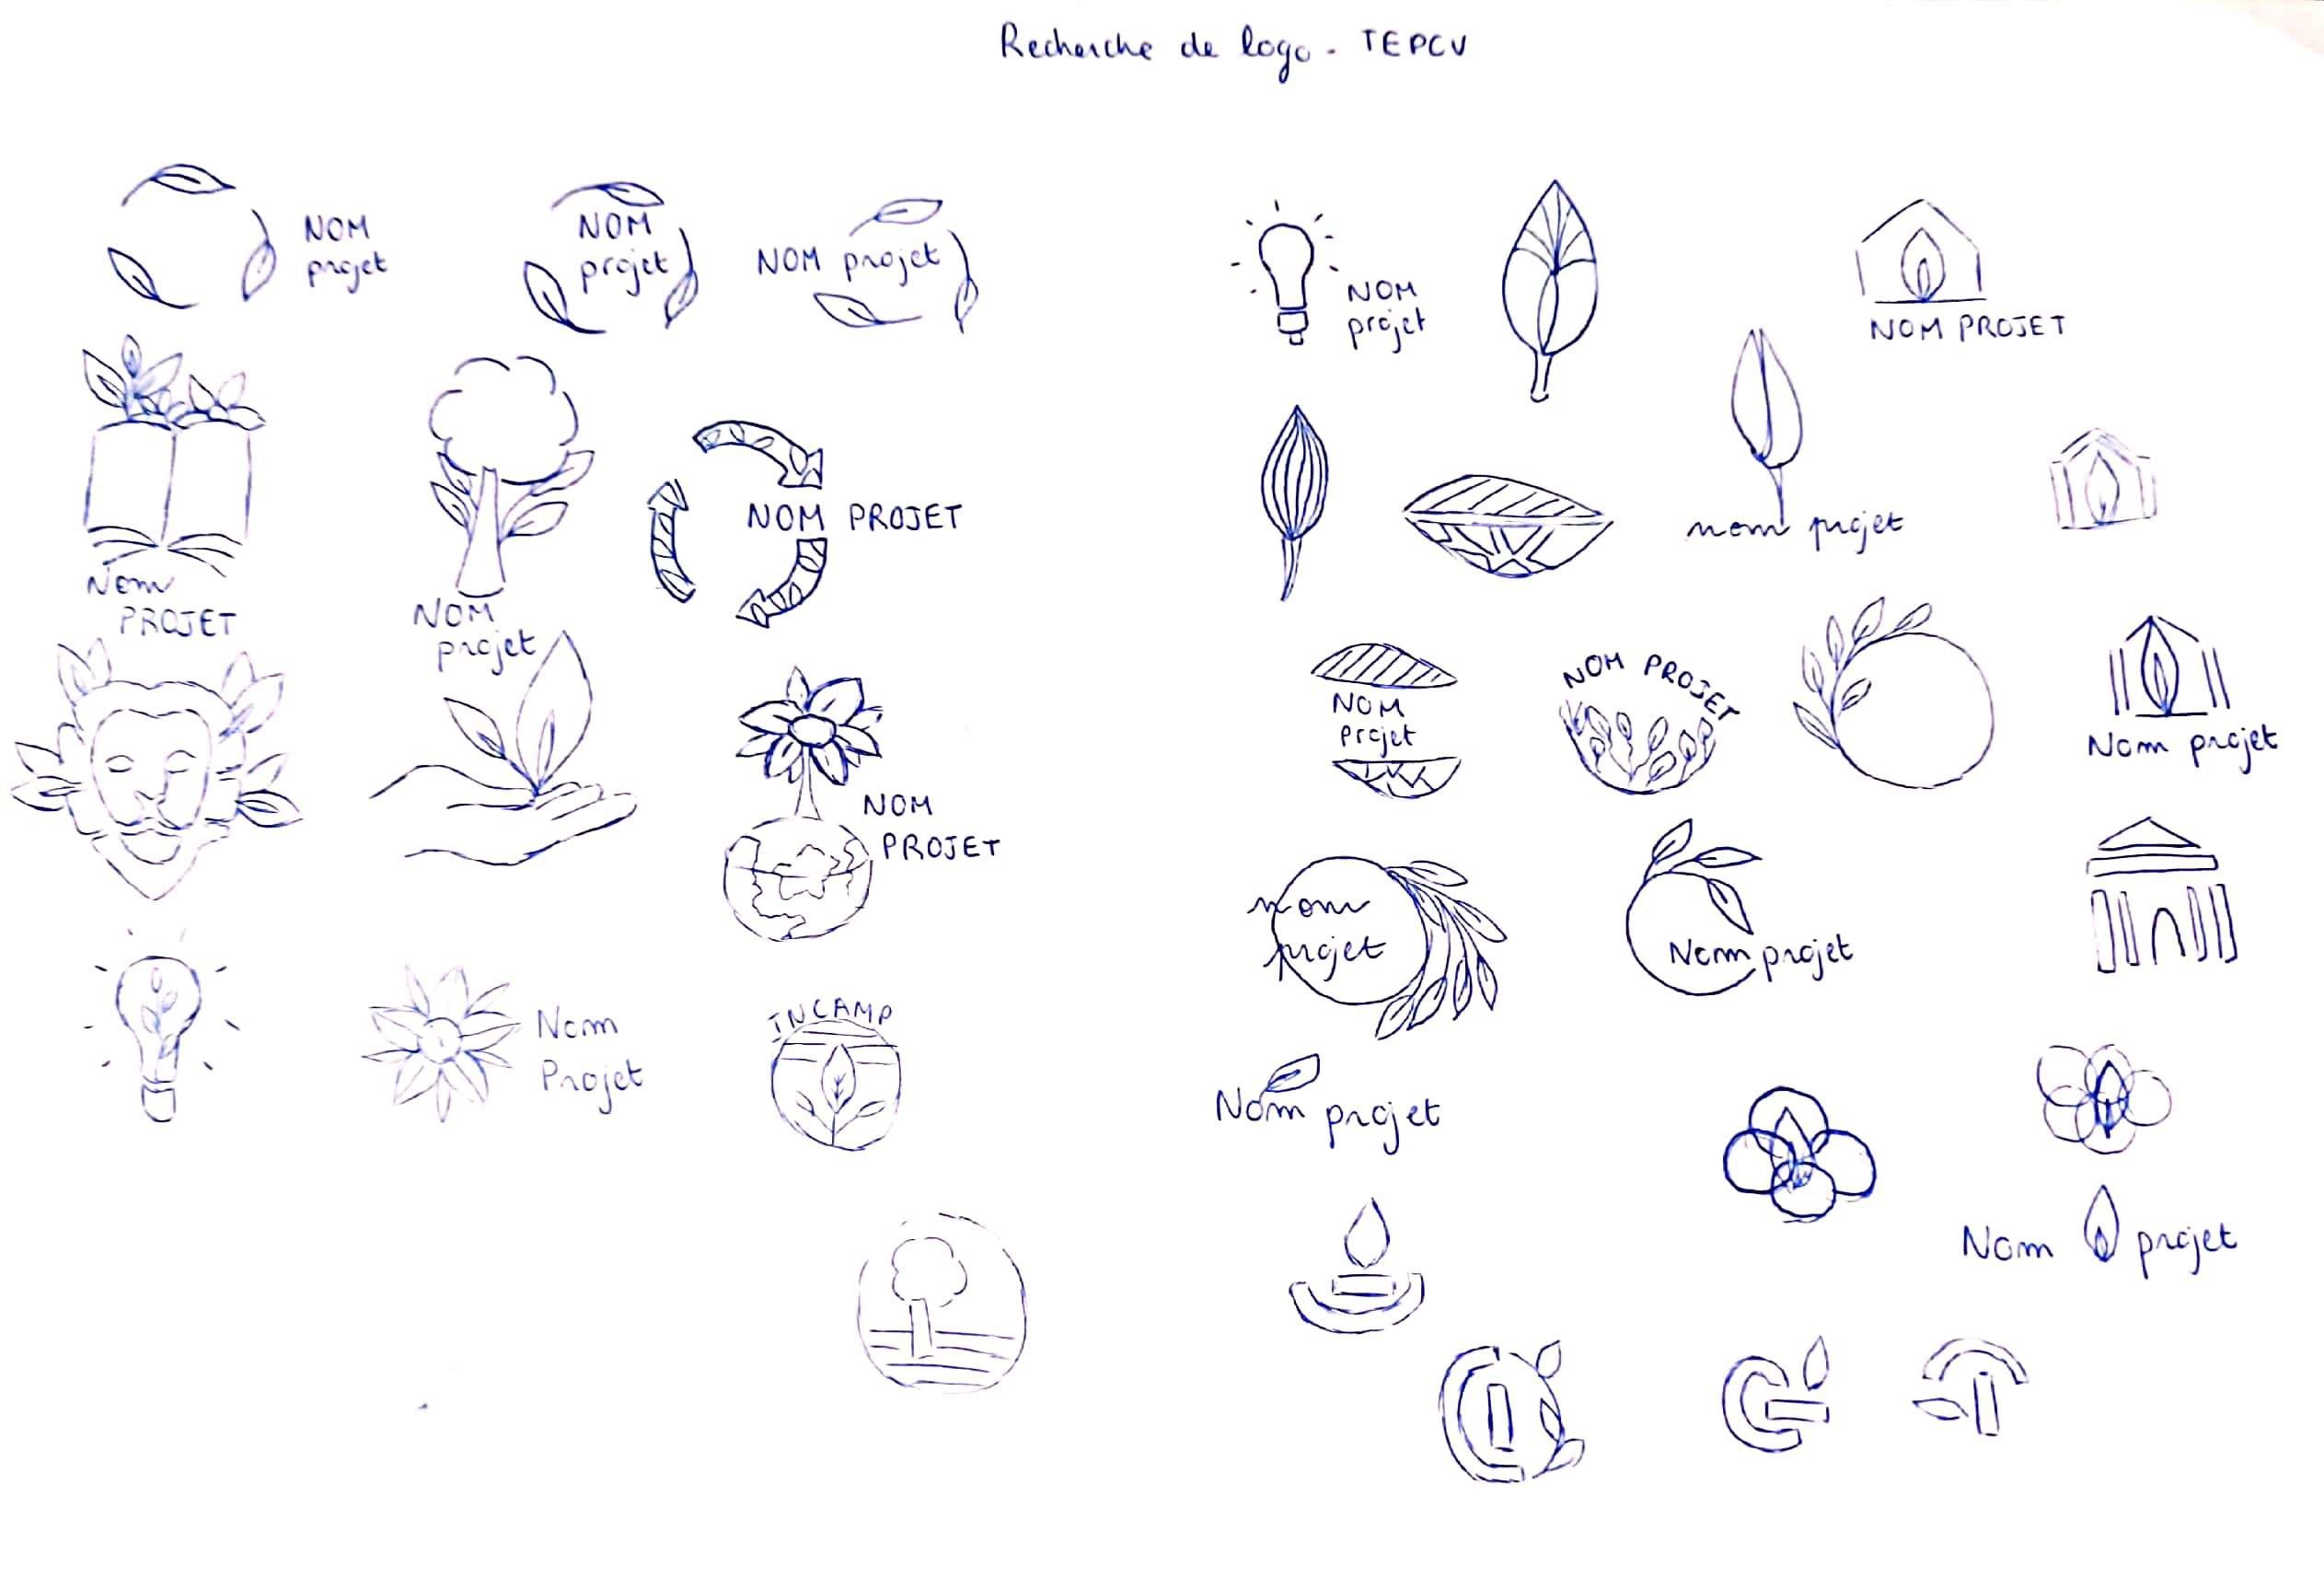 Recherche de logo - TEPCV
NOM
projet
NOM
projet
NOM projet
NOM
projet
NOM PROJET
Nom
PROJET
NOM
projet
NOM PROJET
nom projet
NOM
PROJET
NOM
Projet
NOM PROJET
Nom projet
nom
projet
Nom projet
Nom
Projet
INCAMP
Nom projet
Nom projet